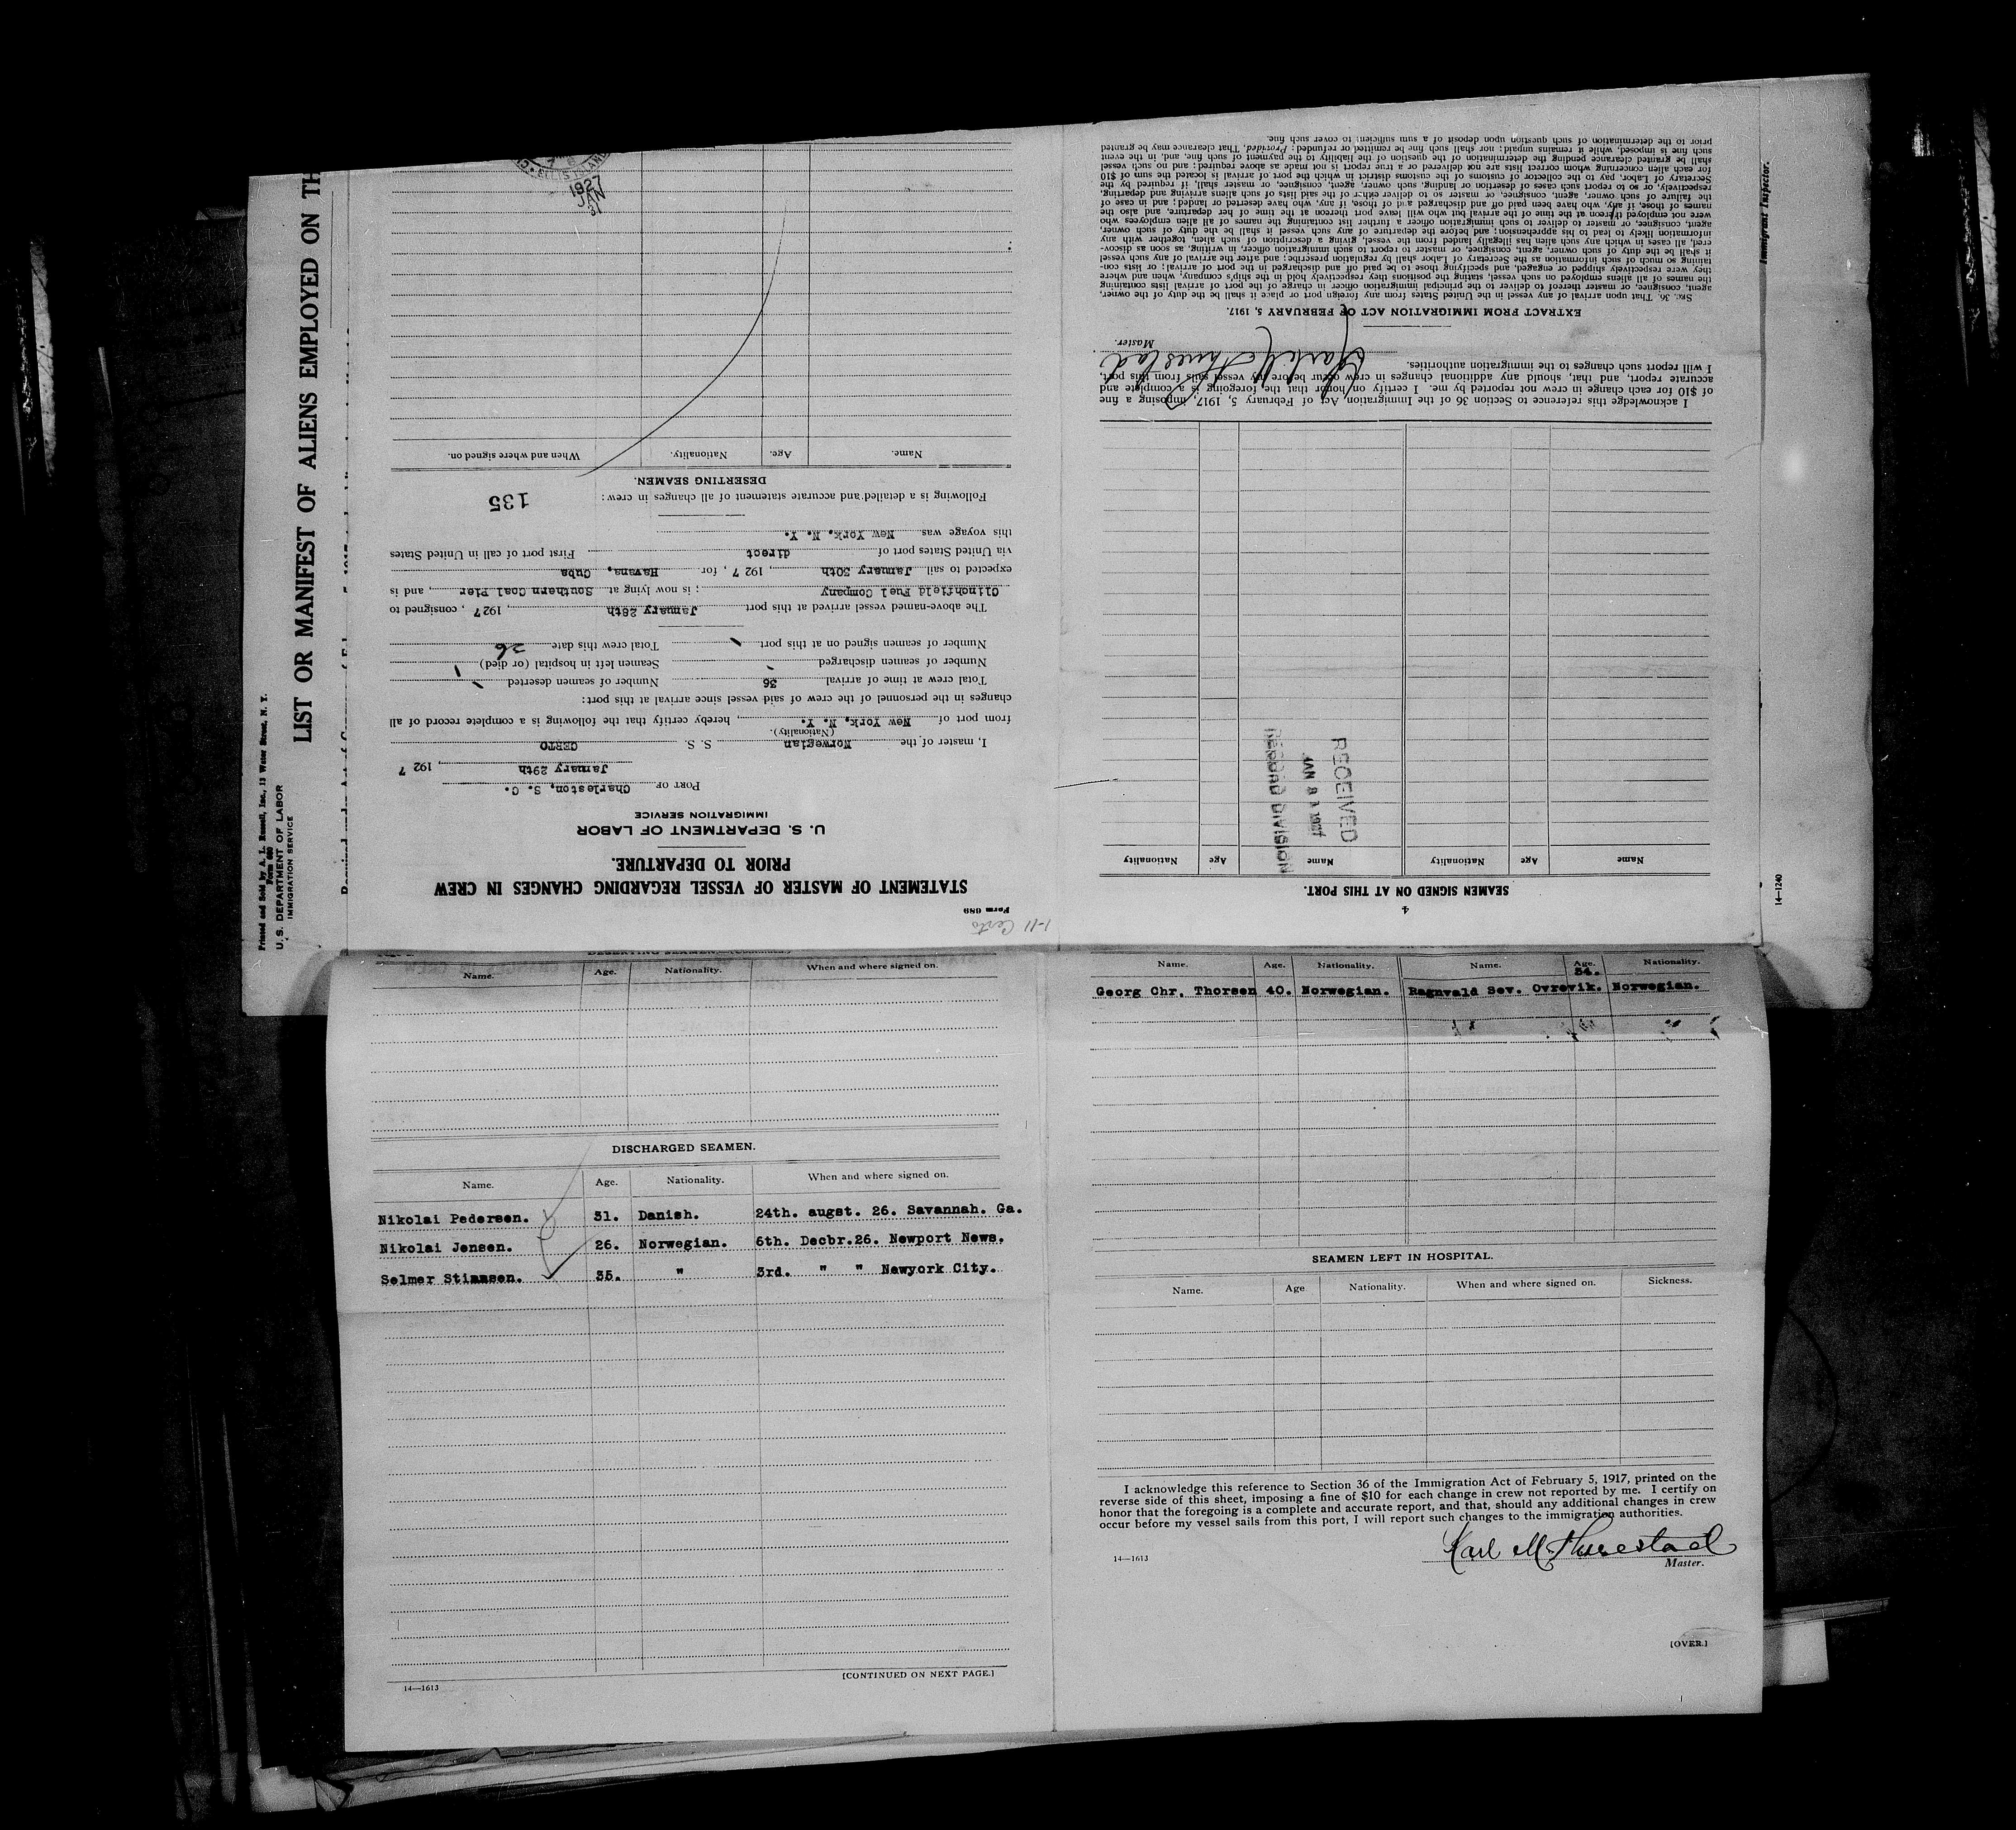 Printed and Sold by A. L. Russell, Inc., 13 Water Street, N. Y.
Form 680
U. S. DEPARTMENT OF LABOR
IMMIGRATION SERVICE
LIST OR MANIFEST OF ALIENS EMPLOYED ON TH
1-11 Certo
Form 689
STATEMENT OF MASTER OF VESSEL REGARDING CHANGES IN CREW
PRIOR TO DEPARTURE.
U. S. DEPARTMENT OF LABOR
IMMIGRATION SERVICE
PORT OF Charleston, S. C.
January 29th, 1927
I, master of the Norwegian S. S. CERTO
(Nationality).
from port of New York, N. Y., hereby certify that the following is a complete record of all
changes in the personnel of the crew of said vessel since arrival at this port:
Total crew at time of arrival 36 Number of seamen deserted
Number of seamen discharged Seamen left in hospital (or died)
Number of seamen signed on at this port Total crew this date 36
The above-named vessel arrived at this port January 28th, 1927, consigned to
Clinchfield Fuel Company; is now lying at Southern Coal Pier, and is
expected to sail January 30th, 1927, for Havana, Cuba
via United States port of direct First port of call in United States
this voyage was New York, N. Y.
Following is a detailed and accurate statement of all changes in crew:
135
DESERTING SEAMEN.
Name. Age. Nationality. When and where signed on.
ELLIS ISLAND
1927
JAN
31
4
SEAMEN SIGNED ON AT THIS PORT.
Name Age Nationality Name Age Nationality
RECEIVED
JAN 31 1927
RECORD DIVISION
I acknowledge this reference to Section 36 of the Immigration Act of February 5, 1917, imposing a fine
of $10 for each change in crew not reported by me. I certify on honor that the foregoing is a complete and
accurate report, and that, should any additional changes in crew occur before my vessel sails from this port,
I will report such changes to the immigration authorities.
Master.
EXTRACT FROM IMMIGRATION ACT OF FEBRUARY 5, 1917.
SEC. 36. That upon arrival of any vessel in the United States from any foreign port or place it shall be the duty of the owner,
agent, consignee, or master thereof to deliver to the principal immigration officer in charge of the port of arrival lists containing
the names of all aliens employed on such vessel, stating the positions they respectively hold in the ship's company, when and where
they were respectively shipped or engaged, and specifying those to be paid off and discharged in the port of arrival; or lists con-
taining so much of such information as the Secretary of Labor shall by regulation prescribe; and after the arrival of any such vessel
it shall be the duty of such owner, agent, consignee, or master to report to such immigration officer, in writing, as soon as discov-
ered, all cases in which any such alien has illegally landed from the vessel, giving a description of such alien, together with any
information likely to lead to his apprehension; and before the departure of any such vessel it shall be the duty of such owner,
agent, consignee, or master to deliver to such immigration officer a further list containing the names of all alien employees who
were not employed thereon at the time of the arrival but who will leave port thereon at the time of her departure, and also the
names of those, if any, who have been paid off and discharged, and of those, if any, who have deserted or landed; and in case of
the failure of such owner, agent, consignee, or master so to deliver either of the said lists of such aliens arriving and departing,
respectively, or so to report such cases of desertion or landing, such owner, agent, consignee, or master shall, if required by the
Secretary of Labor, pay to the collector of customs of the customs district in which the port of arrival is located the sum of $10
for each alien concerning whom correct lists are not delivered or a true report is not made as above required; and no such vessel
shall be granted clearance pending the determination of the question of the liability to the payment of such fine, and, in the event
such fine is imposed, while it remains unpaid; nor shall such fine be remitted or refunded; Provided, That clearance may be granted
prior to the determination of such question upon deposit of a sum sufficient to cover such fine.
Immigrant Inspector.
14—1240
Name. Age. Nationality. When and where signed on.
DISCHARGED SEAMEN.
Name. Age. Nationality. When and where signed on.
Nikolai Pedersen. 31. Danish. 24th. augst. 26. Savannah. Ga.
Nikolai Jensen. 26. Norwegian. 6th. Decbr.26. Newport News.
Selmer Stimmsen. 35. " 3rd. " " Newyork City.
[CONTINUED ON NEXT PAGE.]
14—1613
Name. Age. Nationality. Name. Age. Nationality.
Georg Chr. Thorsen 40. Norwegian. Ragnvald Sev. Ovrevik. 34. Norwegian.
SEAMEN LEFT IN HOSPITAL.
Name. Age Nationality. When and where signed on. Sickness.
I acknowledge this reference to Section 36 of the Immigration Act of February 5, 1917, printed on the
reverse side of this sheet, imposing a fine of $10 for each change in crew not reported by me. I certify on
honor that the foregoing is a complete and accurate report, and that, should any additional changes in crew
occur before my vessel sails from this port, I will report such changes to the immigration authorities.
Karl M Thuestad
Master.
14—1613
[OVER.]